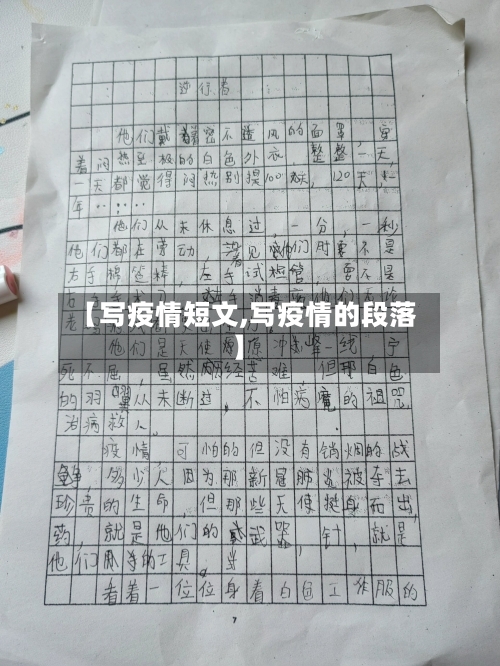 逆行者
他们戴着密不透风的面罩，穿
着闷热至极的白色外衣，整整一天，
一天都觉得闷热别提100天，120天，一
年……
他们从未休息过，一分，一秒
他们都在劳动，没见他们时要不是
右手棉签，左手试管，要不是
【写疫情短文,写疫情的段落
】
他们是天使
死不屈，虽然历经苦难，但那白色
的羽翼从未断过，不怕病魔的诅咒，
治病救人。
疫情，可怕的但没有销烟的战
多少人因为那新冠肺炎被夺去
珍贵的生命，但那些天使挺身而出，
药，就是他们的武器，针，就是
他们的工具，
看着一位位身着白色工作服的
7